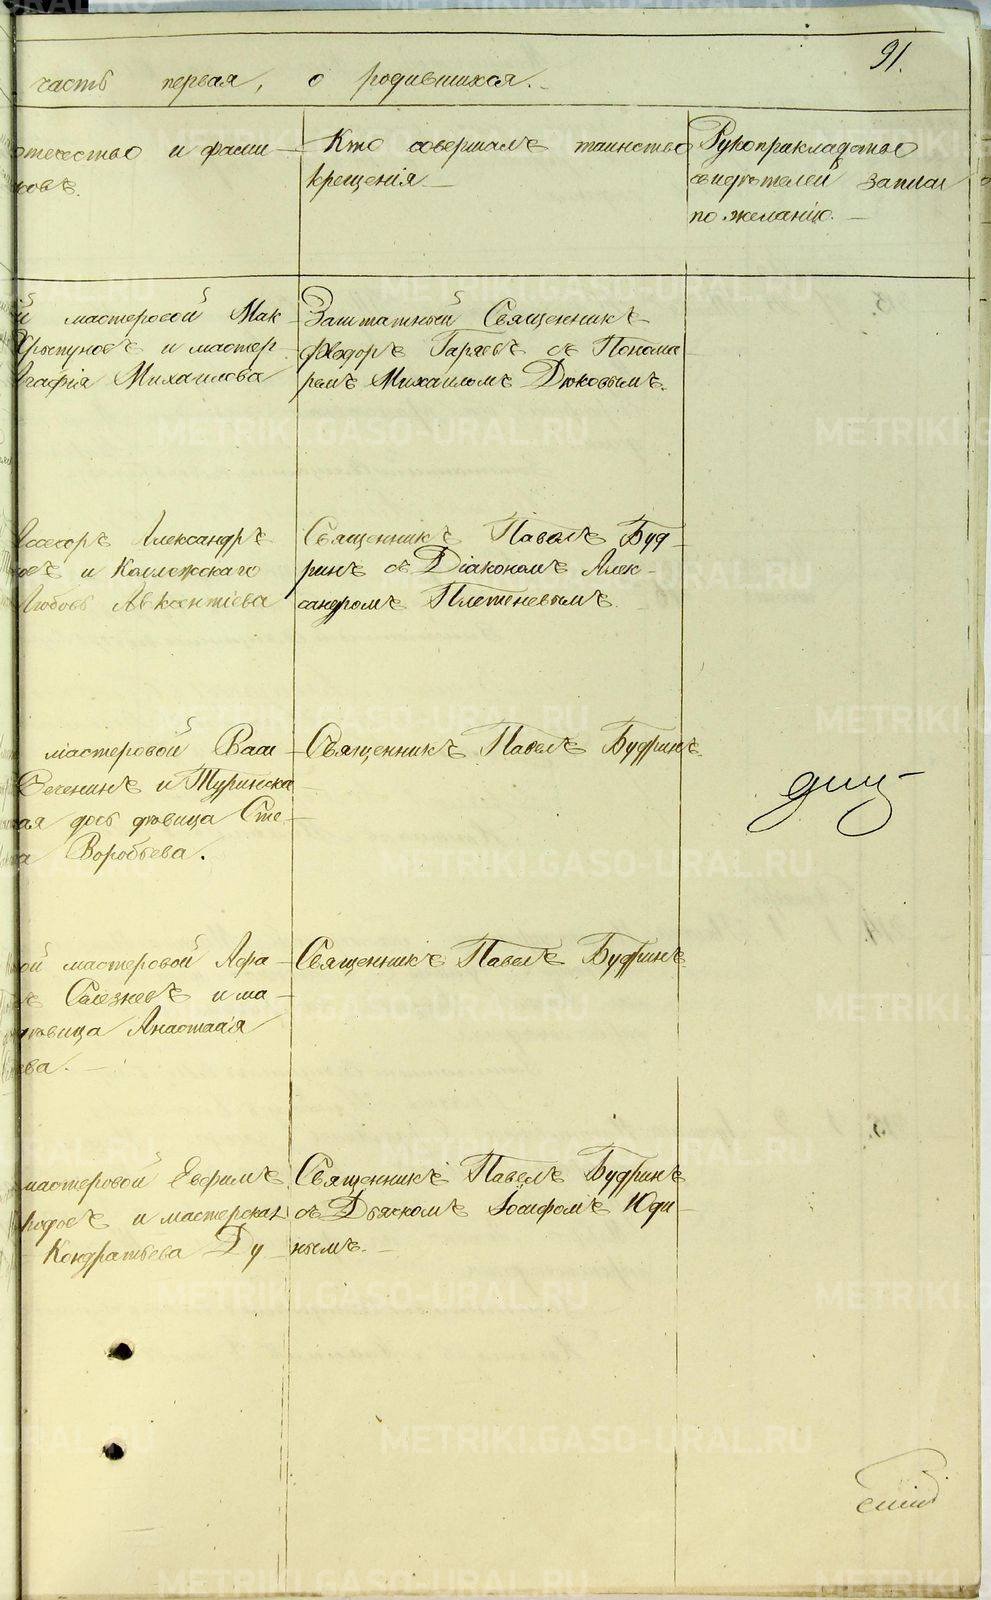 91.
часть первая, о родившихся.
отчество и фами-
Кто совершалъ таинство
крещенія.
Рукоприкладство
свидѣтелей записи
по желанію.
мастеровой Мак-
и мастер.
Агафія Михаилова
Заштатный Священникъ
Ѳеодоръ Гаряевъ съ Понома-
ремъ Михаиломъ Дюковымъ.
Ассесоръ Александръ
и Коллежскаго
Любовь Авксентіева
Священникъ Павелъ Буд-
ринъ съ Діакономъ Алек-
сандромъ Плетеневымъ.
мастеровой Васи-
Печенинъ и Туринска-
ая дочь дѣвица Сте-
Воробьева.
Священникъ Павелъ Будринъ.
мастеровой Афа-
Селезневъ и ма-
дѣвица Анастасія
ева.
Священникъ Павелъ Будринъ
мастеровой Евфимъ
и мастерская
Кондратьева Ду-
Священникъ Павелъ Будринъ
съ Дьячкомъ Іосифомъ Юди-
нымъ.
METRIKI.GASO-URAL.RU